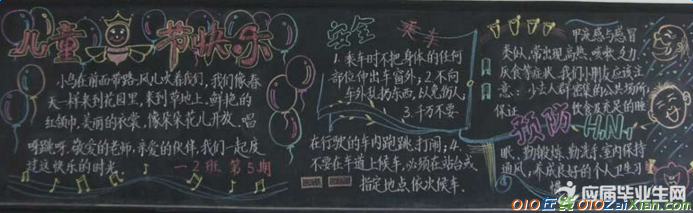 儿童节快乐
小鸟在前面带路,风儿吹着我们,我们像春
天一样来到花园里,来到草地上。鲜艳的
红领巾,美丽的衣裳,像朵朵花儿开放。唱
呀跳呀,敬爱的老师,亲爱的伙伴,我们一起度
过这快乐的时光。
一2班 第5期
安全乘车
1.乘车时不把身体的任何
部位伸出车窗外;2.不向
车外乱扔东西,以免伤人;
3.千万不要
在行驶的车内跑跳、打闹;4.
不要在车道上候车,必须在站台或
指定地点依次候车.
甲流感与感冒
类似,常出现高热、咳嗽、乏力、
厌食等症状,我们小朋友应该注
意:少去人群密集的公共场所,
保证饮食及充足的睡
预防H1N1
眠、勤锻炼、勤洗手,室内保持
通风,养成良好的个人卫生习
应届毕业生网
010在线010ZaiXian.com